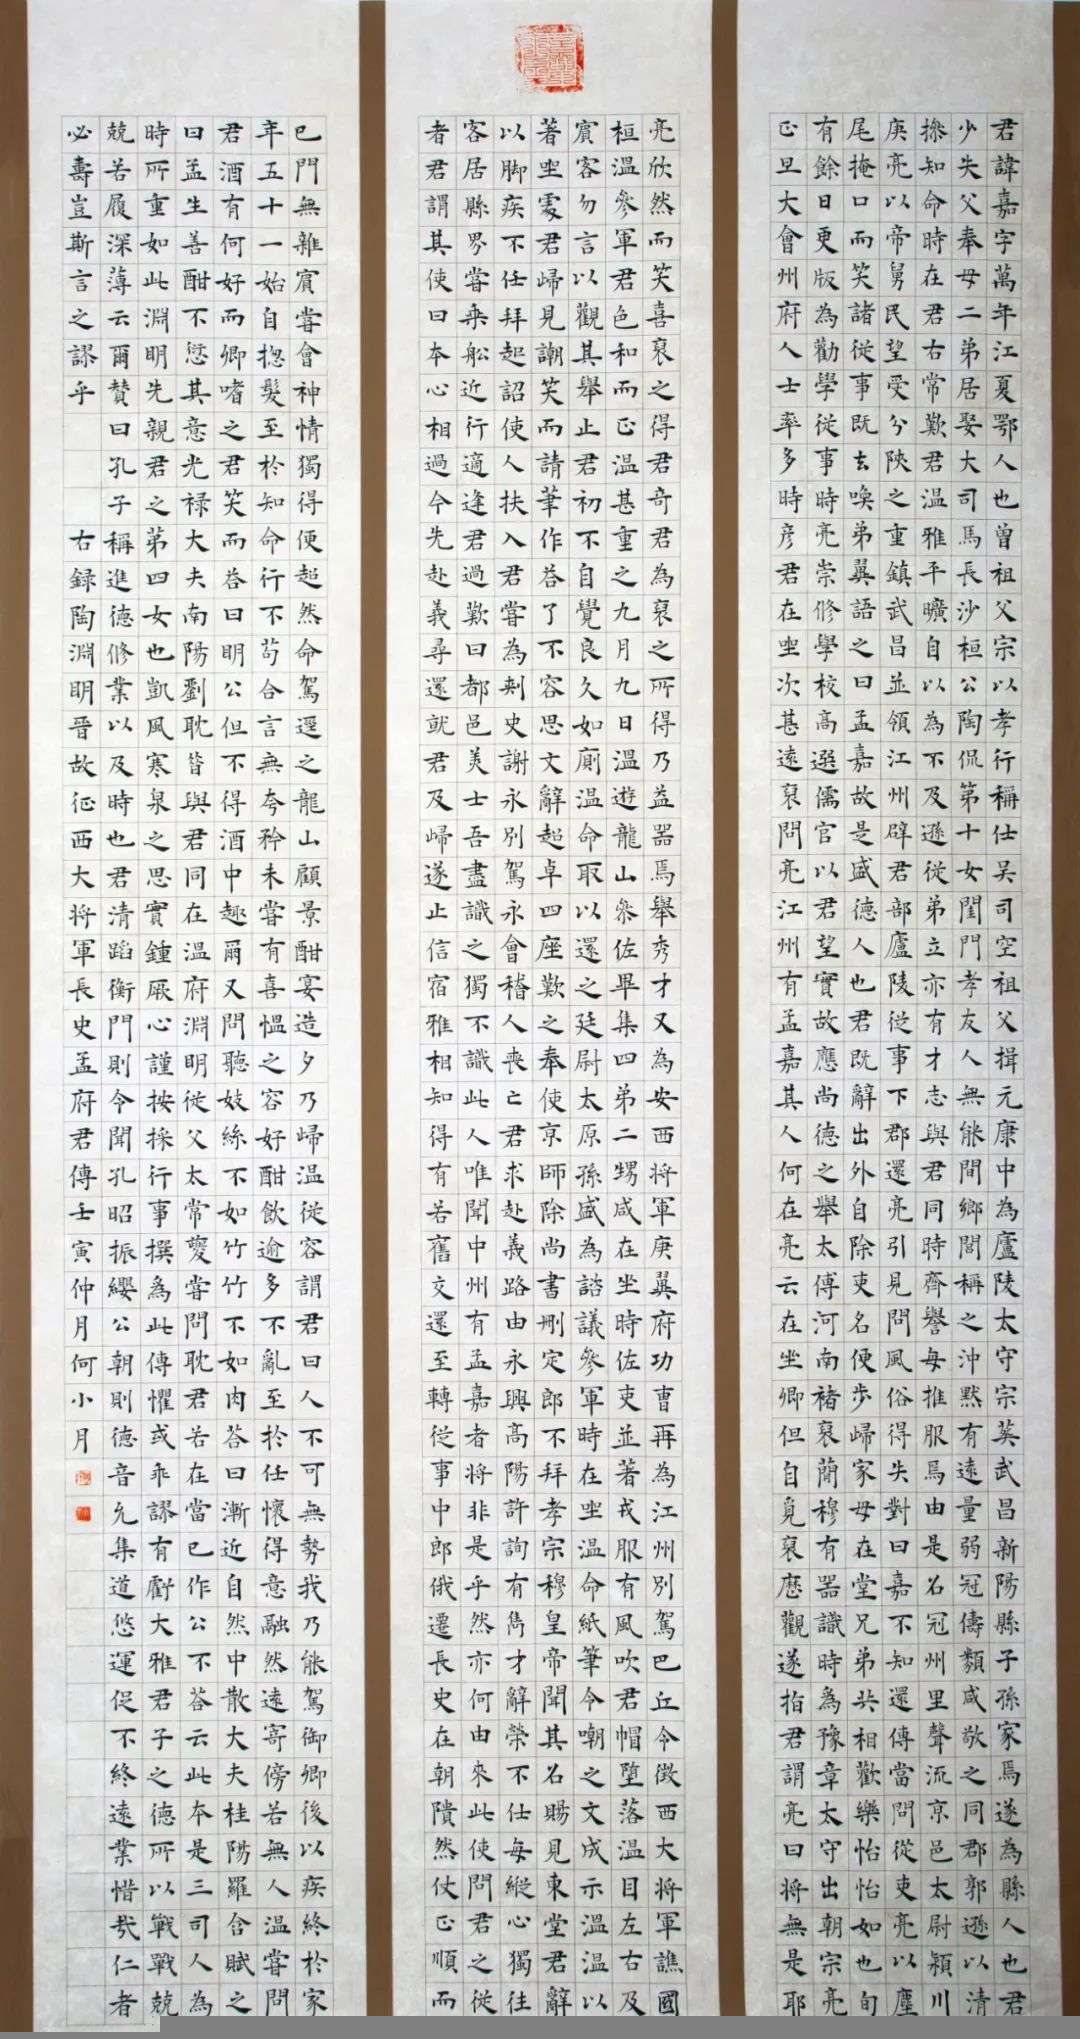 君諱嘉字萬年江夏鄂人也曾祖父宗以孝行稱仕吳司空祖父揖元康中為廬陵太守宗葬武昌新陽縣子孫家焉遂為縣人也君
少失父奉母二弟居娶大司馬長沙桓公陶侃第十女閨門孝友人無能間鄉閭稱之沖默有遠量弱冠儔類咸敬之同郡郭遜以清
操知命時在君右常歎君温雅平曠自以為不及遜從弟立亦有才志與君同時齊譽每推服焉由是名冠州里聲流京邑太尉潁川
庾亮以帝舅民望受分陝之重鎮武昌並領江州辟君部廬陵從事下郡還亮引見問風俗得失對曰嘉不知還傳當問從吏亮以麈
尾掩口而笑諸從事既去喚弟翼語之曰孟嘉故是盛德人也君既辭出外自除吏名便步歸家母在堂兄弟共相歡樂怡怡如也旬
有餘日更版為勸學從事時亮崇修學校高選儒官以君望實故應尚德之舉太傅河南褚裒簡穆有器識時為豫章太守出朝宗亮
正旦大會州府人士率多時彥君在坐次甚遠裒問亮江州有孟嘉其人何在亮云在坐卿但自覓裒歷觀遂指君謂亮曰將無是耶
亮欣然而笑喜裒之得君奇君為裒之所得乃益器焉舉秀才又為安西將軍庾翼府功曹再為江州別駕巴丘令徵西大將軍譙國
桓温參軍君色和而正温甚重之九月九日温遊龍山參佐畢集四弟二甥咸在坐時佐吏並著戎服有風吹君帽墮落温目左右及
賓客勿言以觀其舉止君初不自覺良久如廁温命取以還之廷尉太原孫盛為諮議參軍時在坐温命紙筆令嘲之文成示温温以
著坐處君歸見嘲笑而請筆作答了不容思文辭超卓四座歎之奉使京師除尚書刪定郎不拜孝宗穆皇帝聞其名賜見東堂君辭
以脚疾不任拜起詔使人扶入君嘗為刺史謝永別駕永會稽人喪亡君求赴義路由永興高陽許詢有雋才辭榮不仕每縱心獨往
客居縣界嘗乘船近行適逢君過歎曰都邑美士吾盡識之獨不識此人唯聞中州有孟嘉者將非是乎然亦何由來此使問君之從
者君謂其使曰本心相過今先赴義尋還就君及歸遂止信宿雅相知得有若舊交還至轉從事中郎俄遷長史在朝隤然仗正順而
已門無雜賓嘗會神情獨得便超然命駕逕之龍山顧景酣宴造夕乃歸温從容謂君曰人不可無勢我乃能駕御卿後以疾終於家
年五十一始自揔髮至於知命行不苟合言無夸矜未嘗有喜慍之容好酣飲逾多不亂至於任懷得意融然遠寄傍若無人温嘗問
君酒有何好而卿嗜之君笑而答曰明公但不得酒中趣爾又問聽妓絲不如竹竹不如肉答曰漸近自然中散大夫桂陽羅含賦之
曰孟生善酣不愆其意光祿大夫南陽劉耽昔與君同在温府淵明從父太常夔嘗問耽君若在當已作公不答云此本是三司人為
時所重如此淵明先親君之第四女也凱風寒泉之思實鍾厥心謹按採行事撰為此傳懼或乖謬有虧大雅君子之德所以戰戰兢
兢若履深薄云爾贊曰孔子稱進德修業以及時也君清蹈衡門則令聞孔昭振纓公朝則德音允集道悠運促不終遠業惜哉仁者
必壽豈斯言之謬乎
右録陶淵明晉故征西大將軍長史孟府君傳壬寅仲月何小月